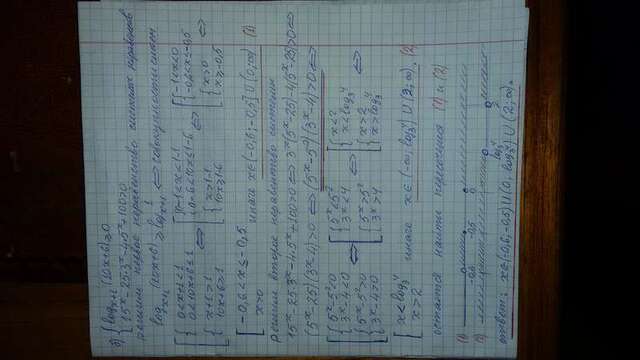 б) { log_{x+1} (10x+6) ≥ 0
{ 15^x - 25·3^x - 4·5^x + 100 > 0
решим первое неравенство системы неравенств
log_{x+1} (10x+6) ≥ log_{x+1} 1 ⇔ совокупности систем
[ { 0 < x+1 < 1 ⇔ [ { 0-1 < x < 1-1 ⇔ [ { -1 < x < 0
{ 0 < 10x+6 ≤ 1 { 0-6 < 10x ≤ 1-6 { -0,6 < x ≤ -0,5
{ x+1 > 1 { x > 1-1 { x > 0
{ 10x+6 ≥ 1 { 10x ≥ 1-6 { x ≥ -0,5 ⇔
[ -0,6 < x ≤ -0,5
x > 0 иначе x ∈ (-0,6; -0,5] ∪ (0; ∞) (1)
решим второе неравенство системы
15^x - 25·3^x - 4·5^x + 100 > 0 ⇔ 3^x (5^x - 25) - 4 (5^x - 25) > 0 ⇔
(5^x - 25) (3^x - 4) > 0 ⇔ (5^x - 5^2) (3^x - 4) > 0 ⇔
[ { 5^x - 5^2 < 0 ⇔ [ { 5^x < 5^2 ⇔ [ { x < 2
{ 3^x - 4 < 0 { 3^x < 4 { x < log_3 4 ⇔
{ 5^x - 5^2 > 0 { 5^x > 5^2 { x > 2
{ 3^x - 4 > 0 { 3^x > 4 { x > log_3 4
[ x < log_3 4
x > 2 иначе x ∈ (-∞; log_3 4) ∪ (2; ∞). (2)
остаётся найти пересечения (1) и (2)
(1) -0,6 -0,5 0
(2) log_3 4 2
ответ: x ∈ (-0,6; -0,5) ∪ (0; log_3 4) ∪ (2; ∞).